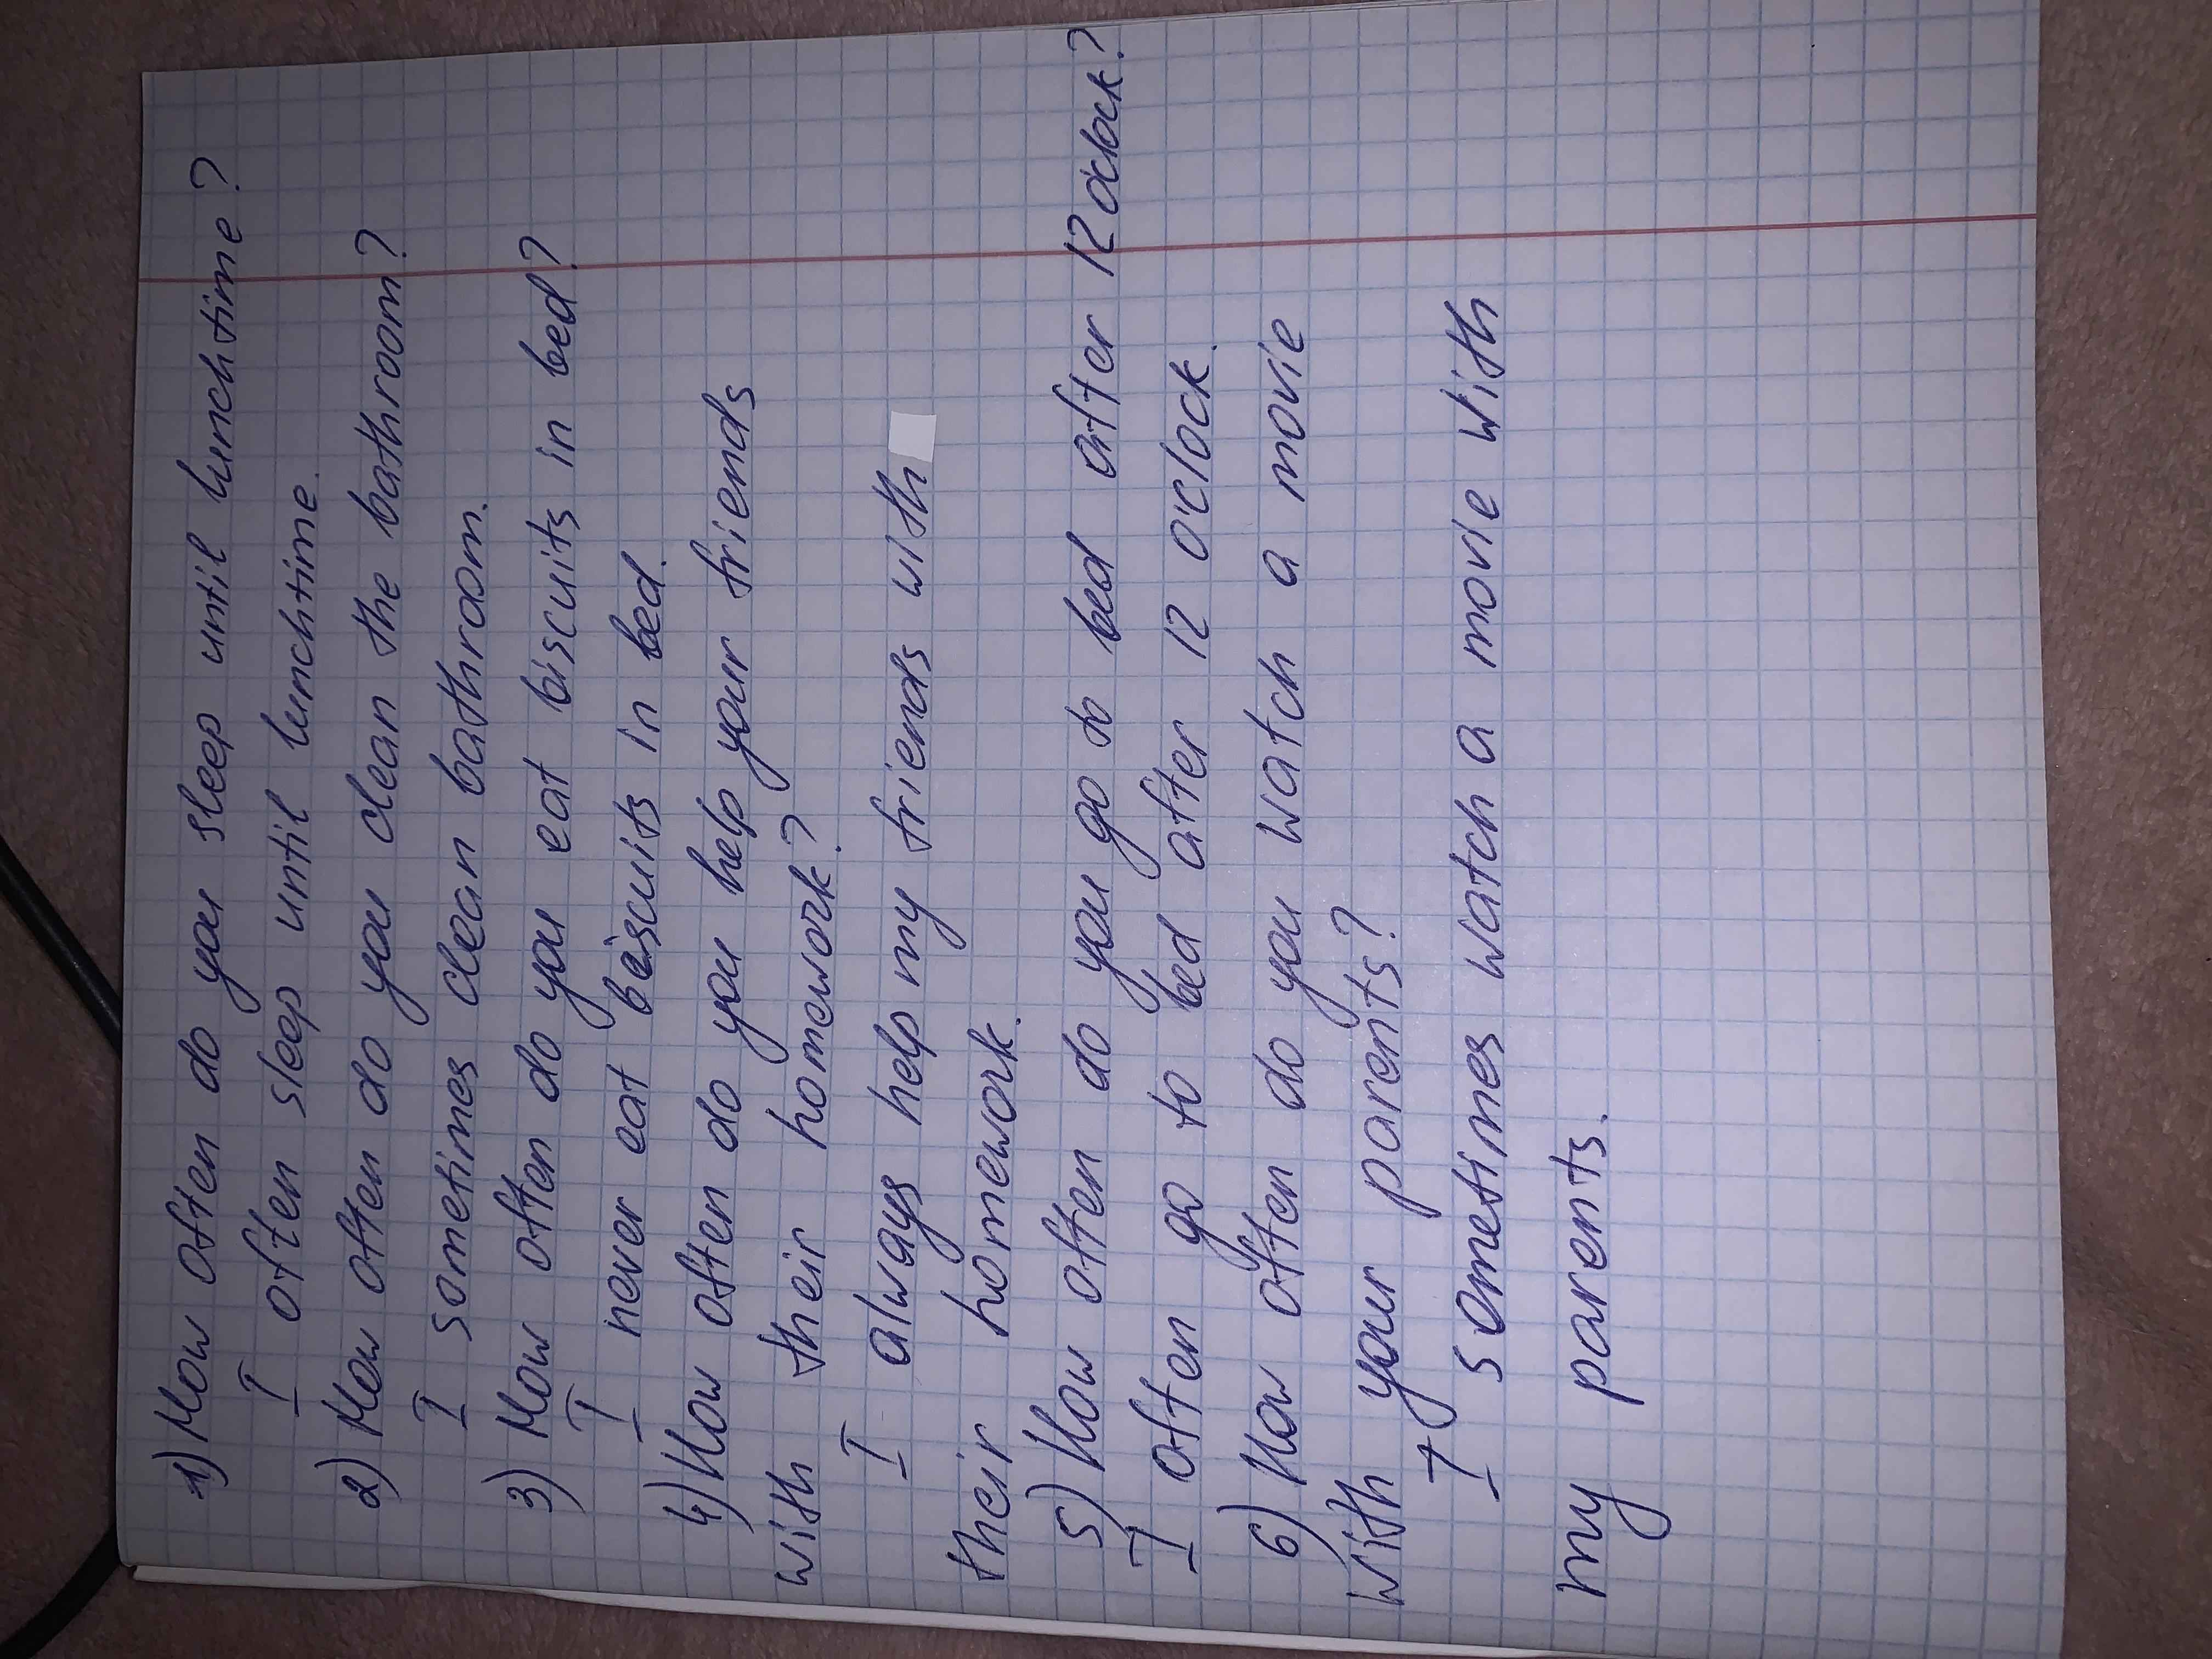 1) How often do you sleep until lunchtime?
I often sleep until lunchtime.
2) How often do you clean the bathroom?
I sometimes clean bathroom.
3) How often do you eat biscuits in bed?
I never eat biscuits in bed.
4) How often do you help your friends
with their homework?
I always help my friends with
their homework.
5) How often do you go to bed after 12 o'clock?
I often go to bed after 12 o'clock.
6) How often do you watch a movie
with your parents?
I sometimes watch a movie with
my parents.